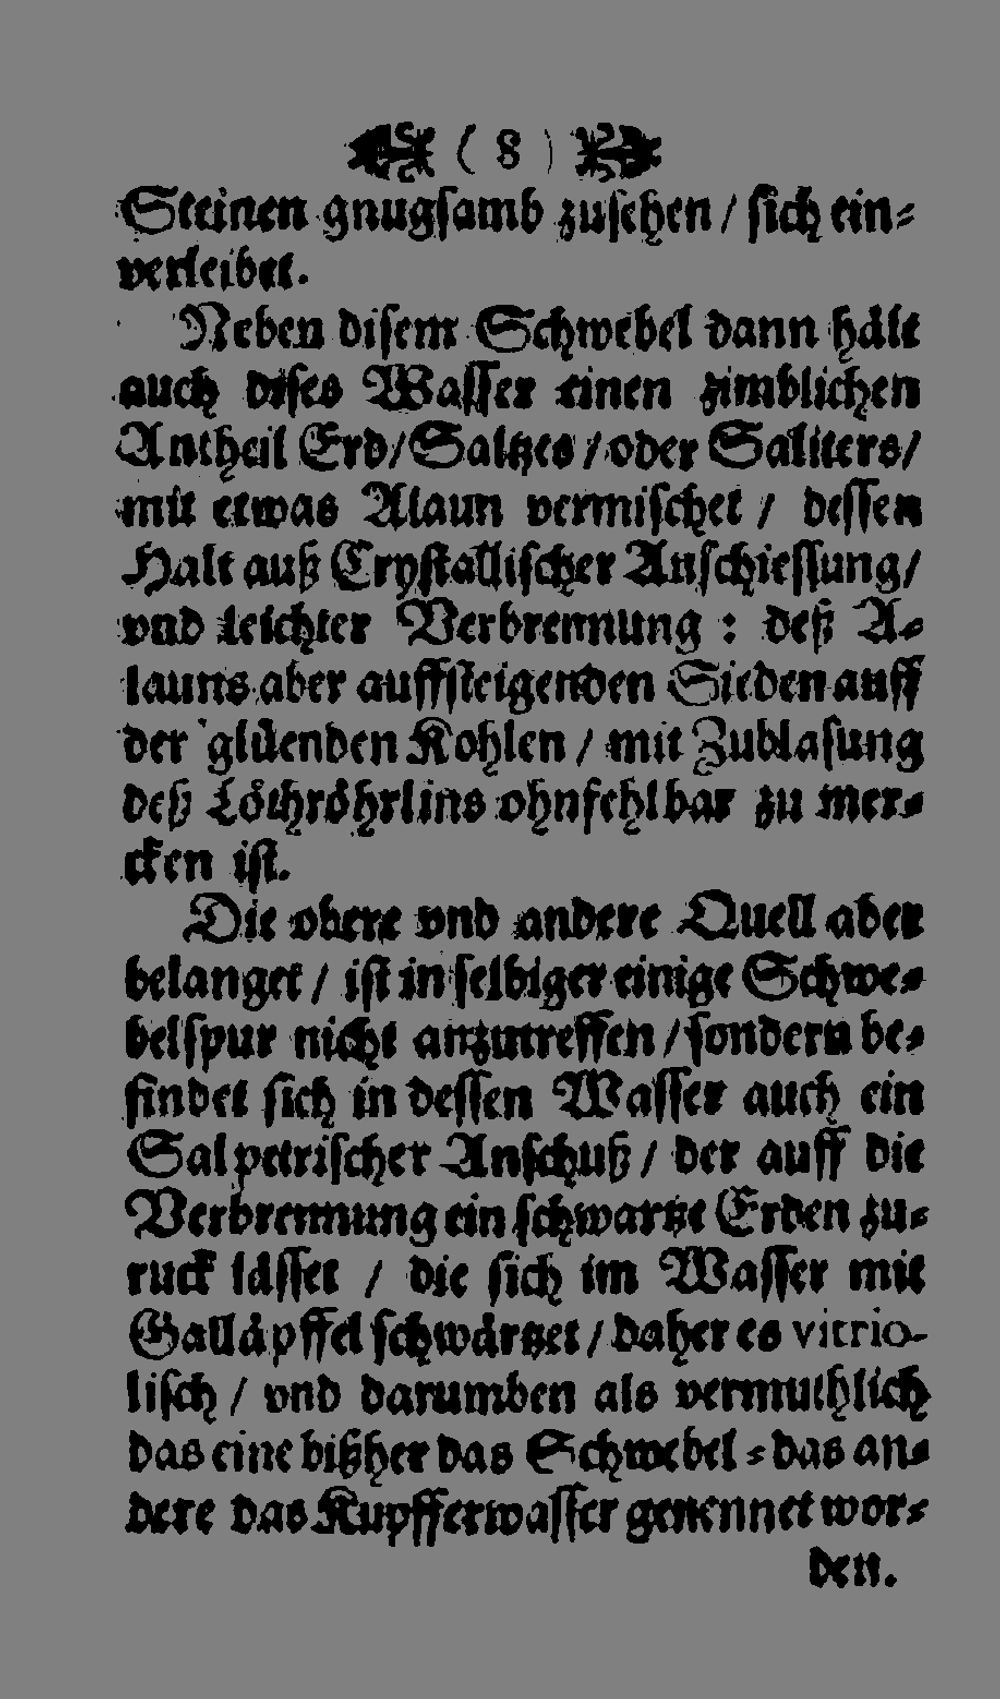 ( 8 )
Steinen gnugſamb zuſehen / ſich ein⸗
verleibet.
Neben diſem Schwebel dann hålt
auch diſes Waſſer einen zimblichen
Antheil Erd / Saltzes / oder Saliters /
mit etwas Alaun vermiſchet / deſſen
Halt auß Cryſtalliſcher Anſchieſſung /
vnd leichter Verbrennung : deß A⸗
launs aber auffſteigenden Sieden auff
der glůenden Kohlen / mit Zublaſung
deß Lôthrôhrlins ohnfehlbar zu mer⸗
cken iſt.
Die obere vnd andere Quell aber
belanget / iſt in ſelbiger einige Schwe⸗
belſpur nicht anzutreffen / ſondern be⸗
findet ſich in deſſen Waſſer auch ein
Salpetriſcher Anſchuß / der auff die
Verbrennung ein ſchwartze Erden zu⸗
ruck låſſet / die ſich im Waſſer mit
Gallåpffel ſchwårtzet / daher es vitrio-
liſch / vnd darumben als vermuthlich
das eine bißher das Schwebel⸗ das an⸗
dere das Kupfferwaſſer genennet wor⸗
den.